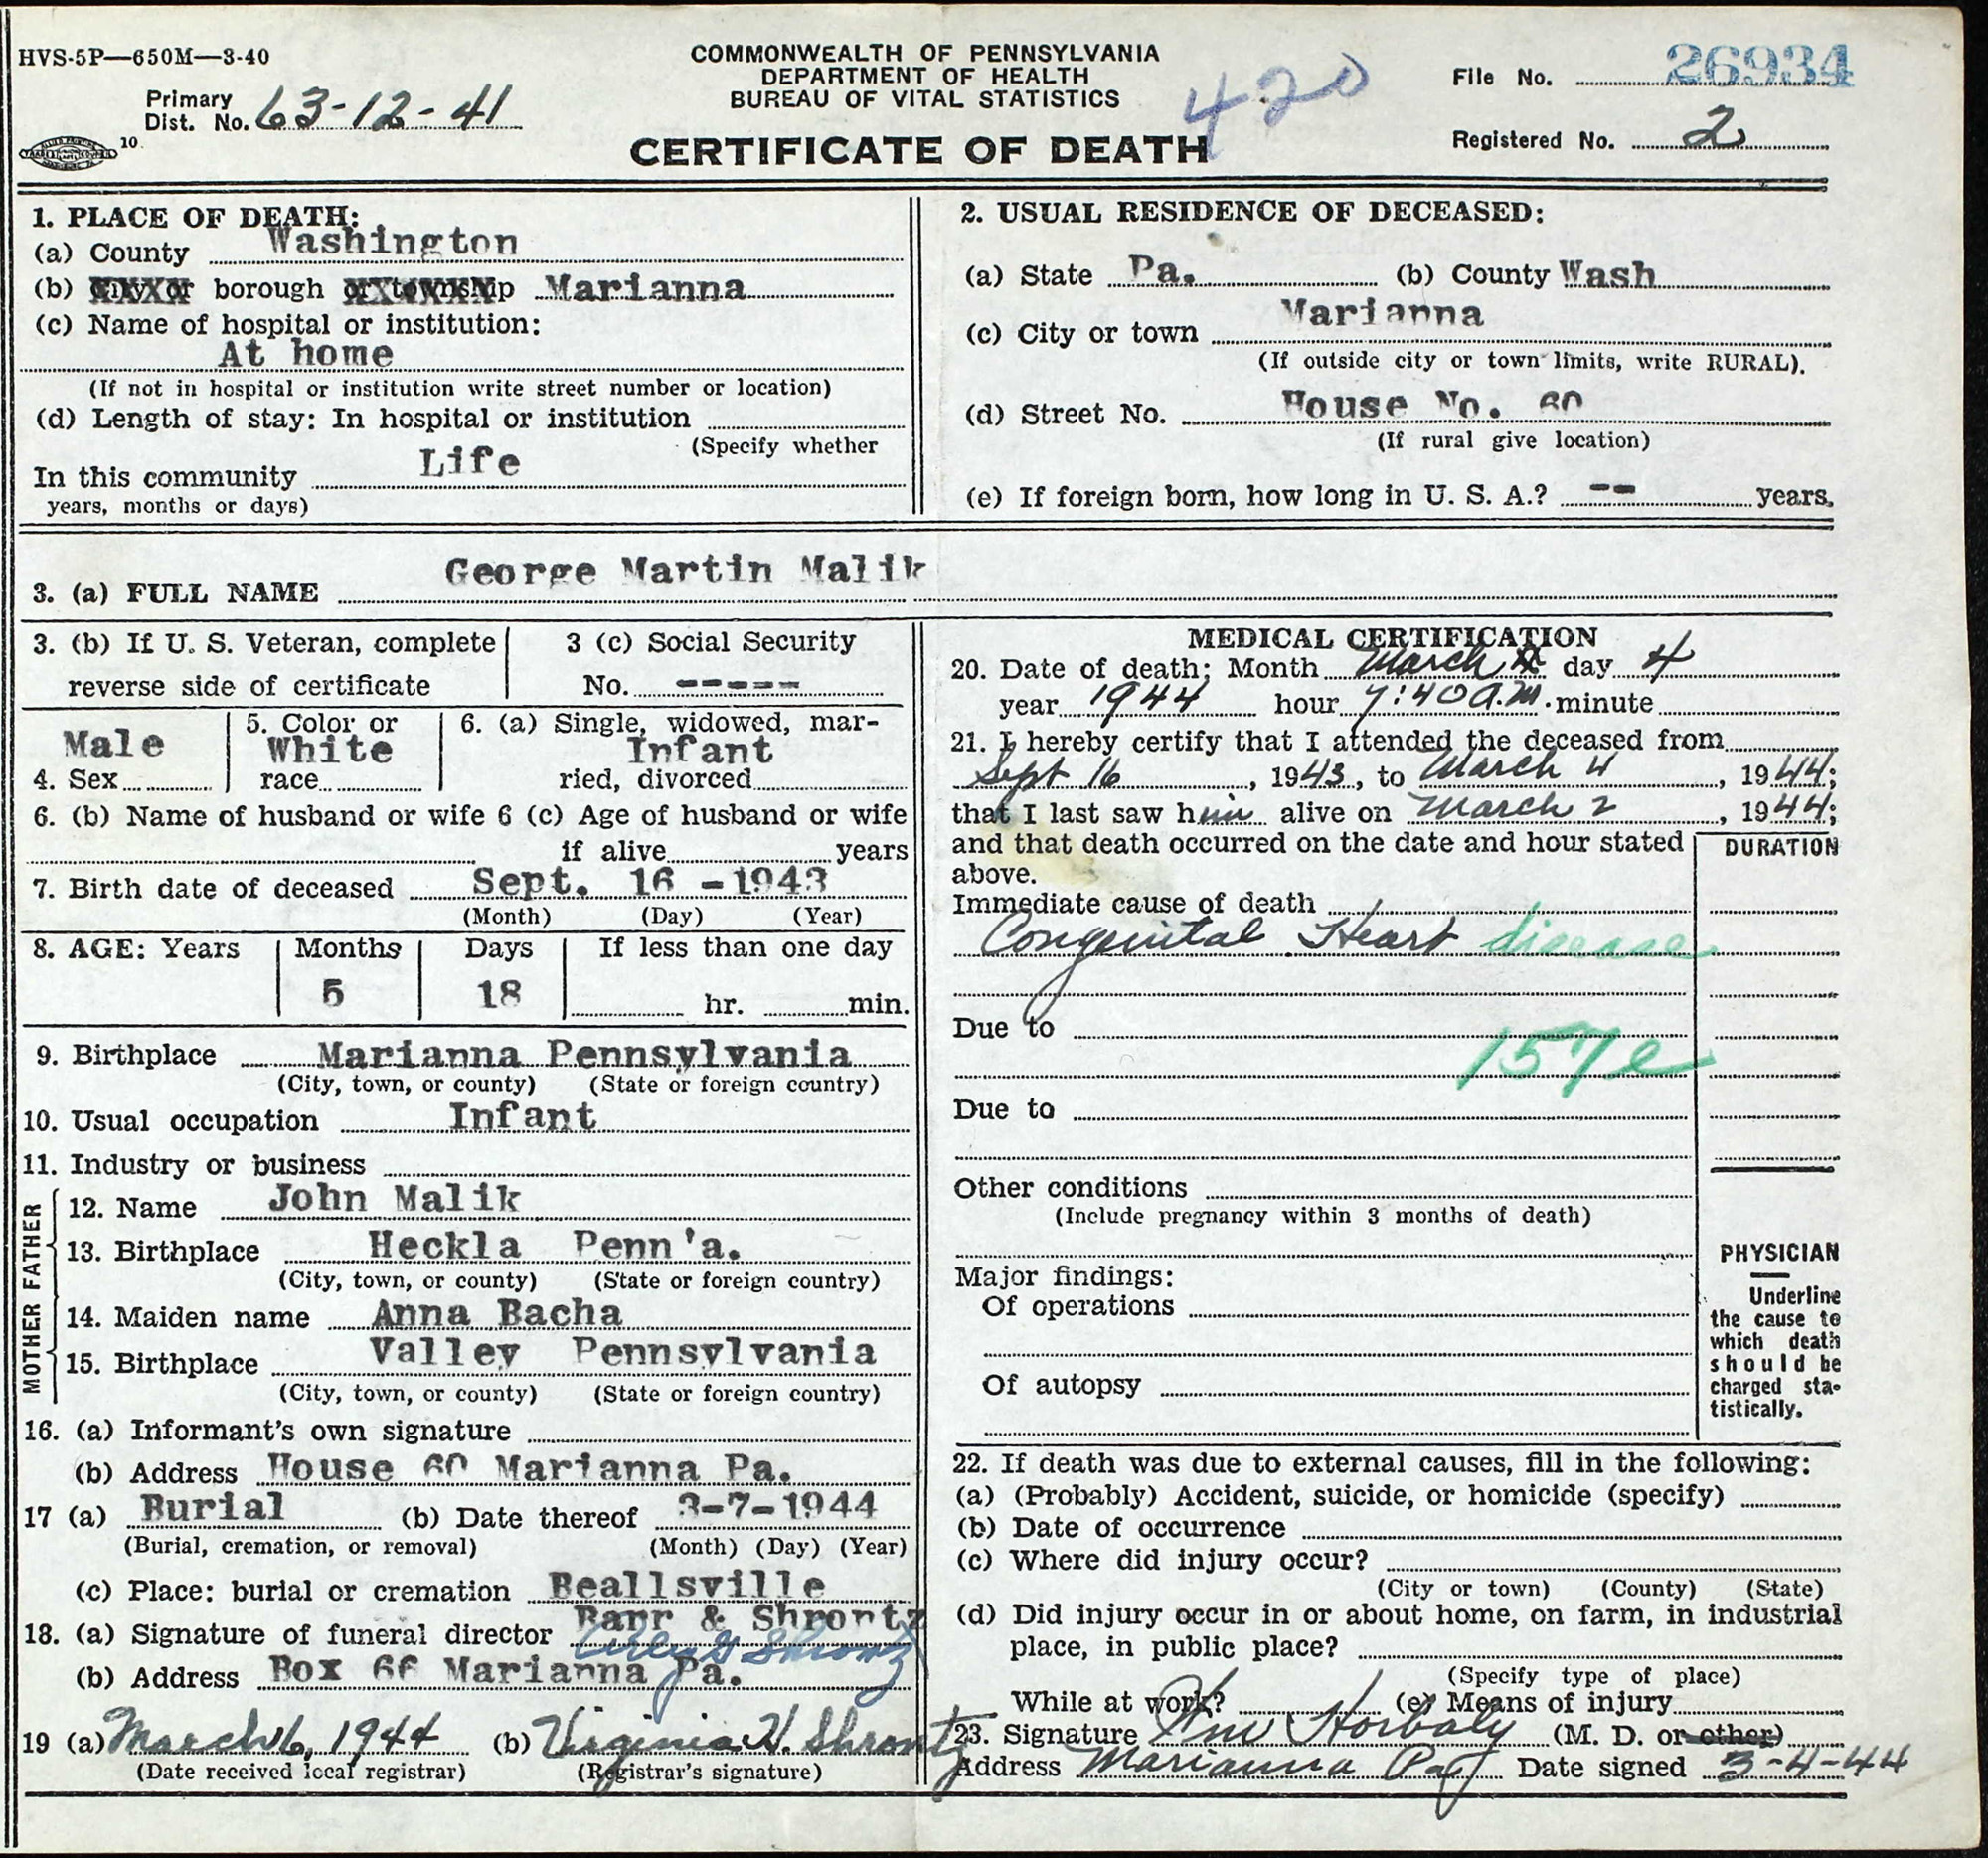 HVS-5P—650M—3-40
COMMONWEALTH OF PENNSYLVANIA
DEPARTMENT OF HEALTH
BUREAU OF VITAL STATISTICS
CERTIFICATE OF DEATH
420
Primary
Dist. No. 63-12-41
10
File No. 26934
Registered No. 2
1. PLACE OF DEATH:
(a) County Washington
(b) City or borough or township Marianna
(c) Name of hospital or institution:
At home
(If not in hospital or institution write street number or location)
(d) Length of stay: In hospital or institution
(Specify whether
In this community Life
years, months or days)
2. USUAL RESIDENCE OF DECEASED:
(a) State Pa. (b) County Wash
(c) City or town Marianna
(If outside city or town limits, write RURAL).
(d) Street No. House No. 60
(If rural give location)
(e) If foreign born, how long in U. S. A.? -- years.
3. (a) FULL NAME George Martin Malik
3. (b) If U. S. Veteran, complete
reverse side of certificate
3 (c) Social Security
No. -----
4. Sex Male
5. Color or
race White
6. (a) Single, widowed, mar-
ried, divorced Infant
6. (b) Name of husband or wife 6 (c) Age of husband or wife
if alive years
7. Birth date of deceased Sept. 16 -1943
(Month) (Day) (Year)
8. AGE: Years Months Days If less than one day
5 18 hr. min.
9. Birthplace Marianna Pennsylvania
(City, town, or county) (State or foreign country)
10. Usual occupation Infant
11. Industry or business
FATHER
12. Name John Malik
13. Birthplace Heckla Penn'a.
(City, town, or county) (State or foreign country)
MOTHER
14. Maiden name Anna Bacha
15. Birthplace Valley Pennsylvania
(City, town, or county) (State or foreign country)
16. (a) Informant's own signature
(b) Address House 60 Marianna Pa.
17 (a) Burial (b) Date thereof 3-7-1944
(Burial, cremation, or removal) (Month) (Day) (Year)
(c) Place: burial or cremation Beallsville
18. (a) Signature of funeral director Barr & Shrontz
Shrontz
(b) Address Box 66 Marianna Pa.
19 (a) March 6, 1944 (b) Virginia H. Shrontz
(Date received local registrar) (Registrar's signature)
MEDICAL CERTIFICATION
20. Date of death: Month March day 4
year 1944 hour 7:40 a.m. minute
21. I hereby certify that I attended the deceased from
Sept 16, 1943, to March 4, 1944;
that I last saw him alive on March 2, 1944;
and that death occurred on the date and hour stated
above.
DURATION
Immediate cause of death
Congenital Heart disease
Due to
157e
Due to
Other conditions
(Include pregnancy within 3 months of death)
Major findings:
Of operations
Of autopsy
PHYSICIAN
Underline
the cause to
which death
should be
charged sta-
tistically.
22. If death was due to external causes, fill in the following:
(a) (Probably) Accident, suicide, or homicide (specify)
(b) Date of occurrence
(c) Where did injury occur?
(City or town) (County) (State)
(d) Did injury occur in or about home, on farm, in industrial
place, in public place?
(Specify type of place)
While at work? (e) Means of injury
23. Signature Wm Horbaly (M. D. or other)
Address Marianna Pa Date signed 3-4-44